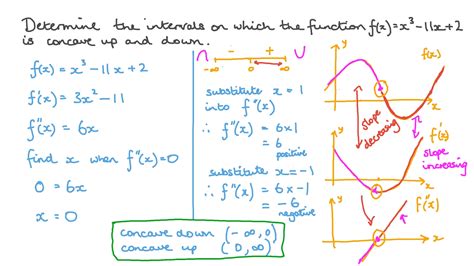 Determine the intervals on which the function f(x)=x³-11x+2
is concave up and down.
f(x) = x³ -11x +2
f'(x) = 3x² -11
f''(x) = 6x
find x when f''(x)=0
0 = 6x
x = 0
∩ - + ∪
-∞ 0 ∞
substitute x = 1
into f''(x)
∴ f''(x) = 6×1
= 6
positive
substitute x = -1
∴ f''(x) = 6×-1
= -6
negative
concave down (-∞,0)
concave up (0,∞)
y
f(x)
x
slope
decreasing
y
f'(x)
slope
increasing
x
y
f''(x)
x